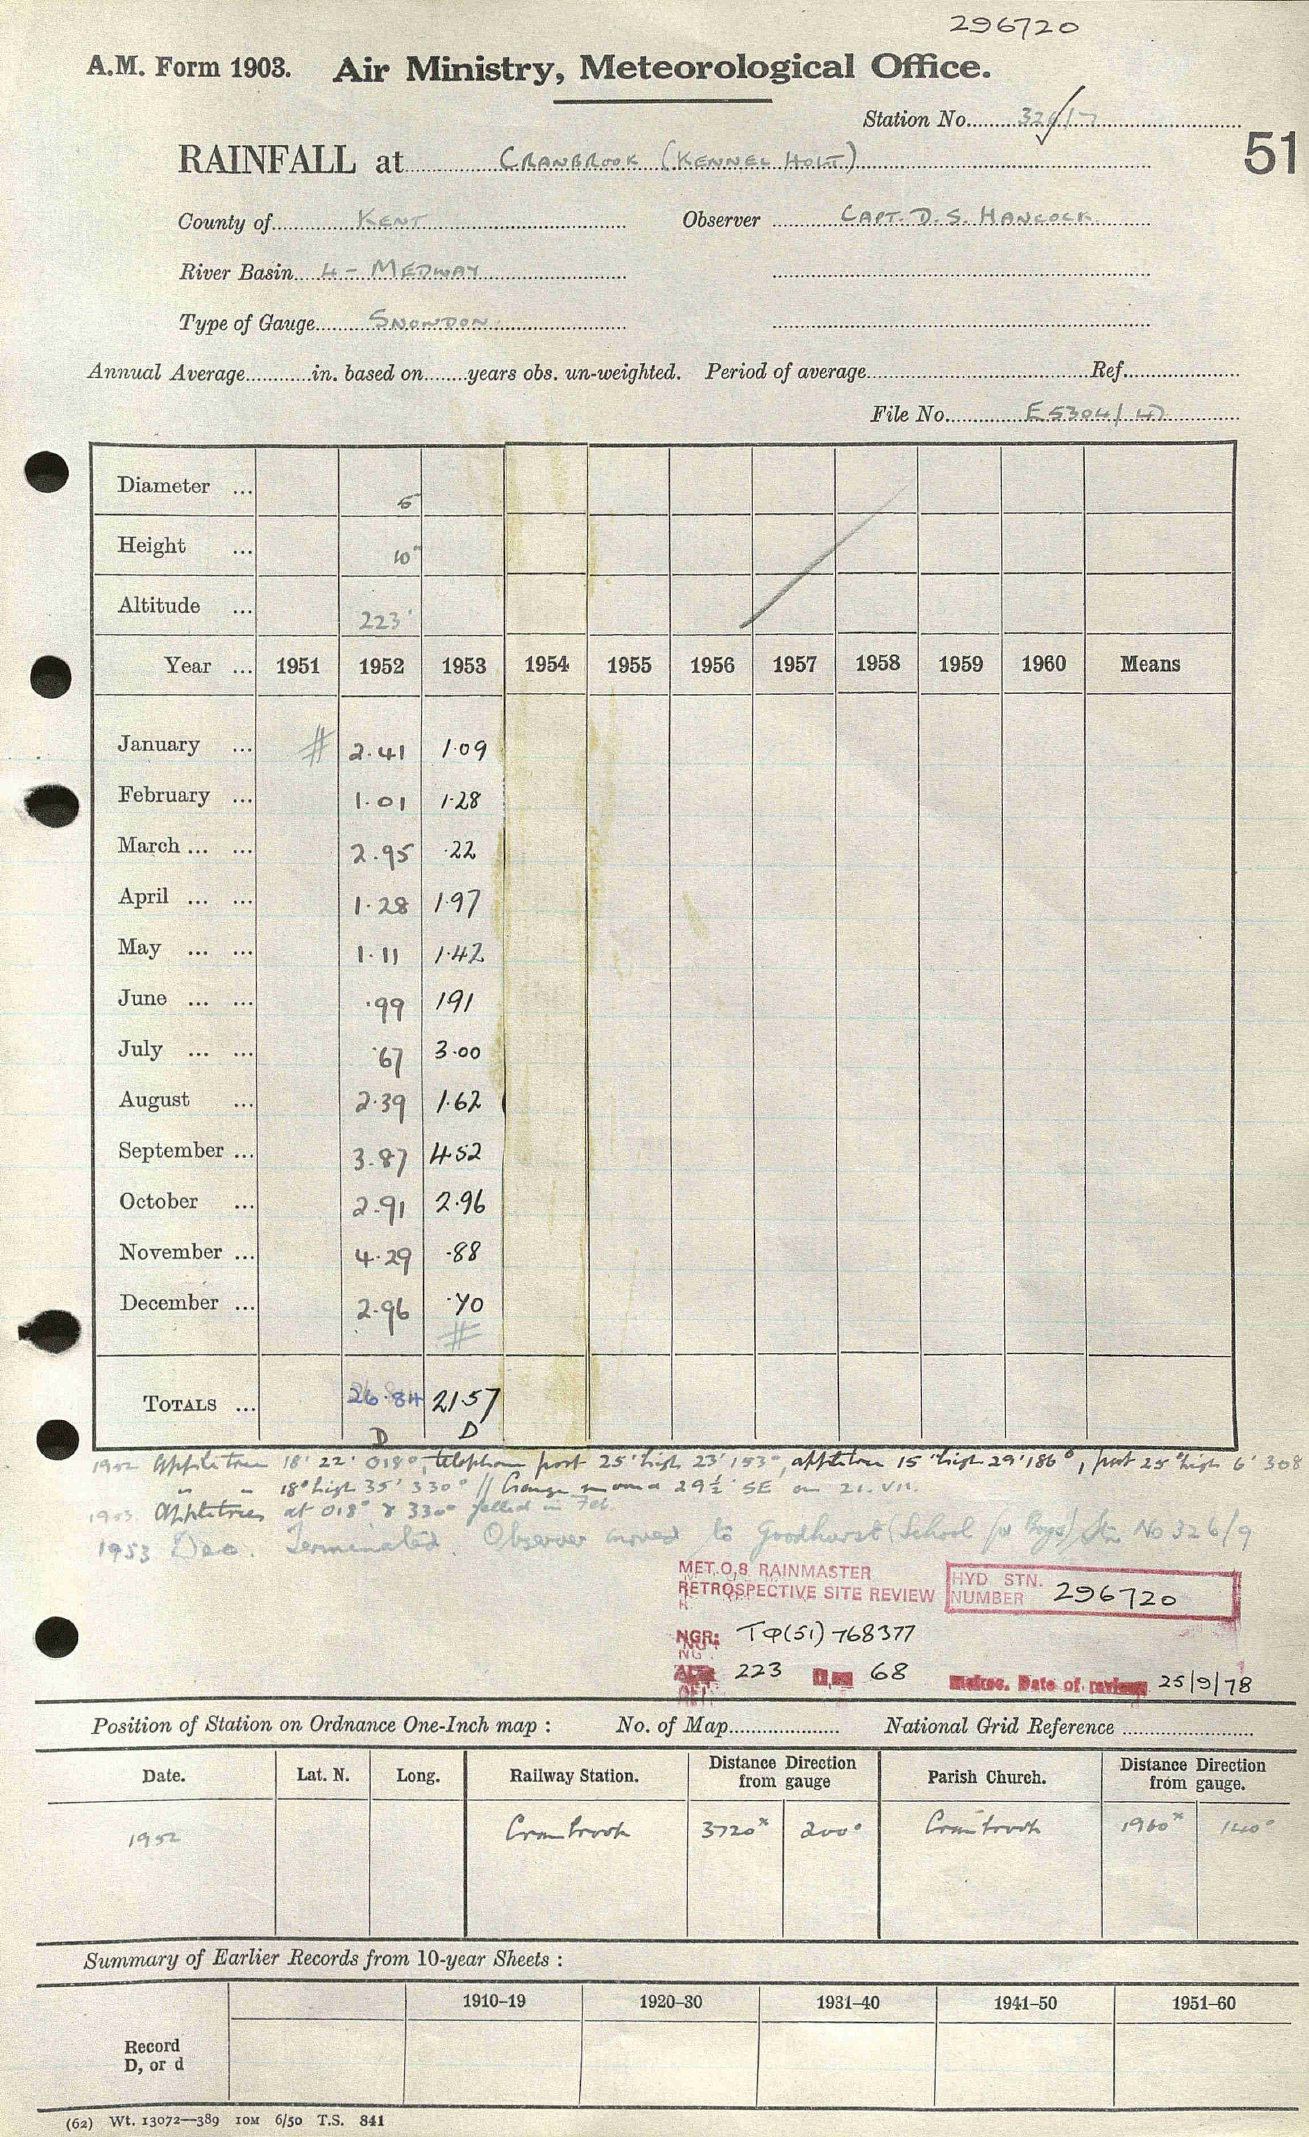 296720
A.M. Form 1903. Air Ministry, Meteorological Office.
Station No. 326/17
51
RAINFALL at CRANBROOK (KENNEL HOLT)
County of KENT Observer CAPT. D. S. HANCOCK
River Basin 4 - MEDWAY
Type of Gauge SNOWDON
Annual Average in. based on years obs. un-weighted. Period of average Ref.
File No. E5304/47
Diameter ... 5"
Height ... 10"
Altitude ... 223'
Year ... 1951 1952 1953 1954 1955 1956 1957 1958 1959 1960 Means
January ... # 2.41 1.09
February ... 1.01 1.28
March ... ... 2.95 .22
April ... ... 1.28 1.97
May ... ... 1.11 1.42
June ... ... .99 191
July ... ... .67 3.00
August ... 2.39 1.62
September ... 3.87 4.52
October ... 2.91 2.96
November ... 4.29 .88
December ... 2.96 .70
#
TOTALS ... 26.84 21.57
D D
1952 Appletree 18' 22' 018°, telephone post 25' high 23' 153°, appletree 15' high 29' 186°, post 25' high 6' 308
" " 18' high 35' 330° // Gauge moved 29½' SE on 21.VII.
1953. Appletrees at 018° & 330° felled in Feb.
1953 Dec. Terminated. Observer moved to Goodhurst (School for Boys) Stn No 326/9
MET.O.8 RAINMASTER
RETROSPECTIVE SITE REVIEW
HYD STN. NUMBER 296720
NGR: TQ(51)768377
223 68 Metres. Date of review 25/9/78
Position of Station on Ordnance One-Inch map : No. of Map National Grid Reference
Date. Lat. N. Long. Railway Station. Distance Direction from gauge Parish Church. Distance Direction from gauge.
1952 Cranbrook 3720x 200° Cranbrook 1960x 140°
Summary of Earlier Records from 10-year Sheets :
1910–19 1920–30 1931–40 1941–50 1951–60
Record
D, or d
(62) Wt. 13072—389 10M 6/50 T.S. 841